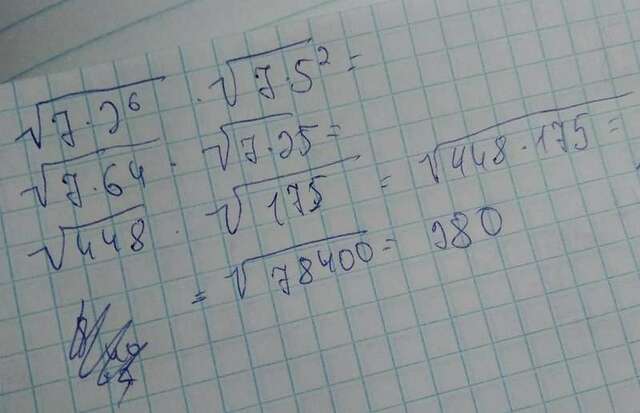 √7·2⁶ · √7·5² =
√7·64 · √7·25 =
√448 · √175 = √448·175 =
= √78400 = 280